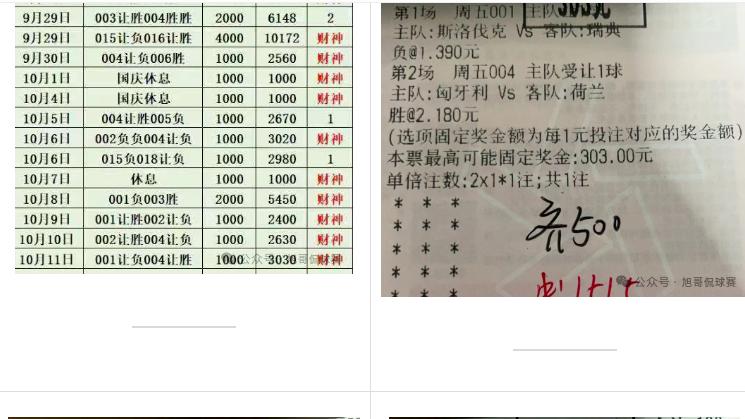 9月29日 003让胜004胜胜 2000 6148 2
9月29日 015让负016让胜 4000 10172 财神
9月30日 004让负006胜 1000 2560 财神
10月1日 国庆休息 1000 1000 财神
10月4日 国庆休息 1000 1000 财神
10月5日 004让胜005负 1000 2670 1
10月6日 002负负004让负 1000 3020 财神
10月6日 015负018让负 1000 2980 1
10月7日 休息 1000 1000 财神
10月8日 001负003胜 2000 5450 财神
10月9日 001让胜002让负 1000 2400 财神
10月10日 002让胜004让负 1000 2630 财神
10月11日 001让负004让胜 1000 3030 财神
公众号·旭哥侃球赛
第1场 周五001 主队
主队:斯洛伐克 Vs 客队:瑞典
负@1.390元
第2场 周五004 主队受让1球
主队:匈牙利 Vs 客队:荷兰
胜@2.180元
(选项固定奖金额为每1元投注对应的奖金额)
本票最高可能固定奖金:303.00元
单倍注数:2x1*1注;共1注
* * *
* * *
* * *
* * *
* * *
500
公众号·旭哥侃球赛